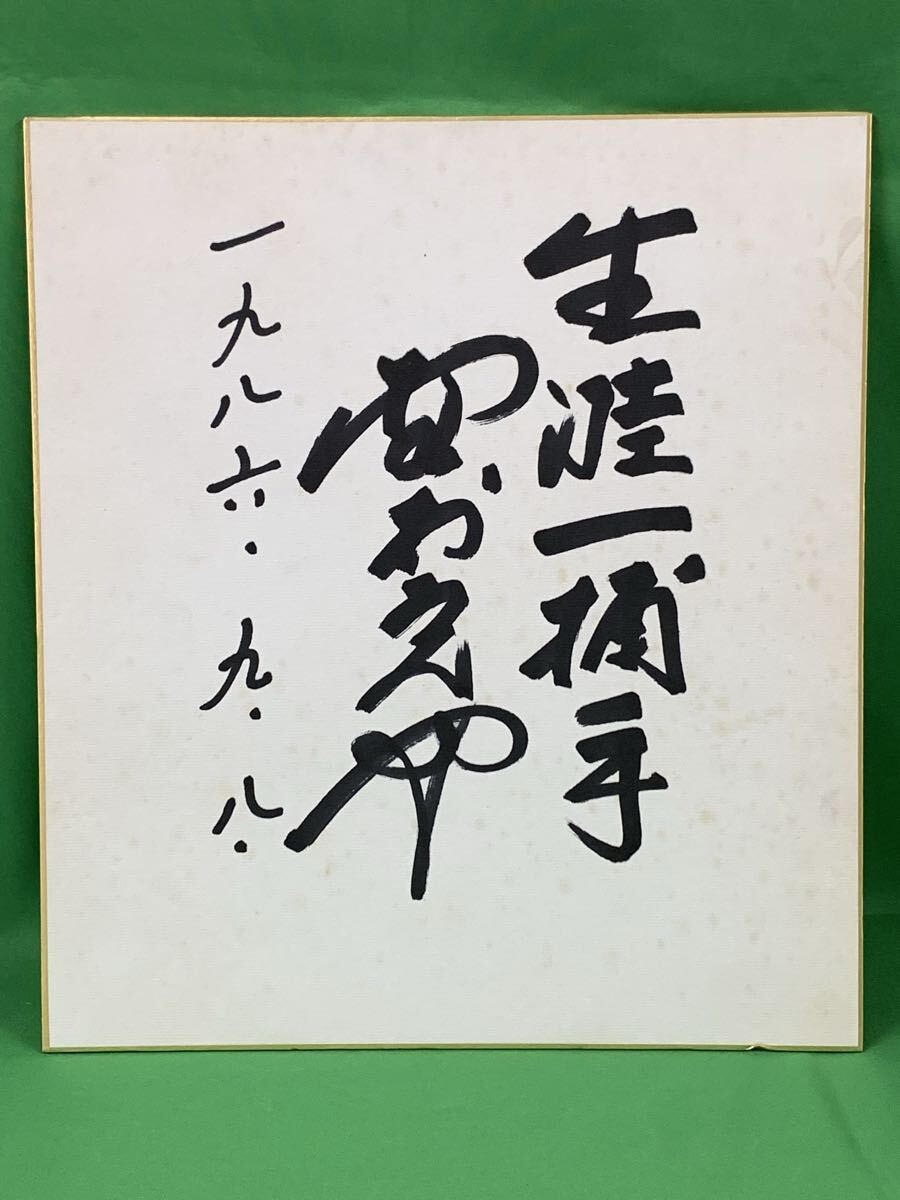 生涯一捕手
野村克也
一九八六.九.八.